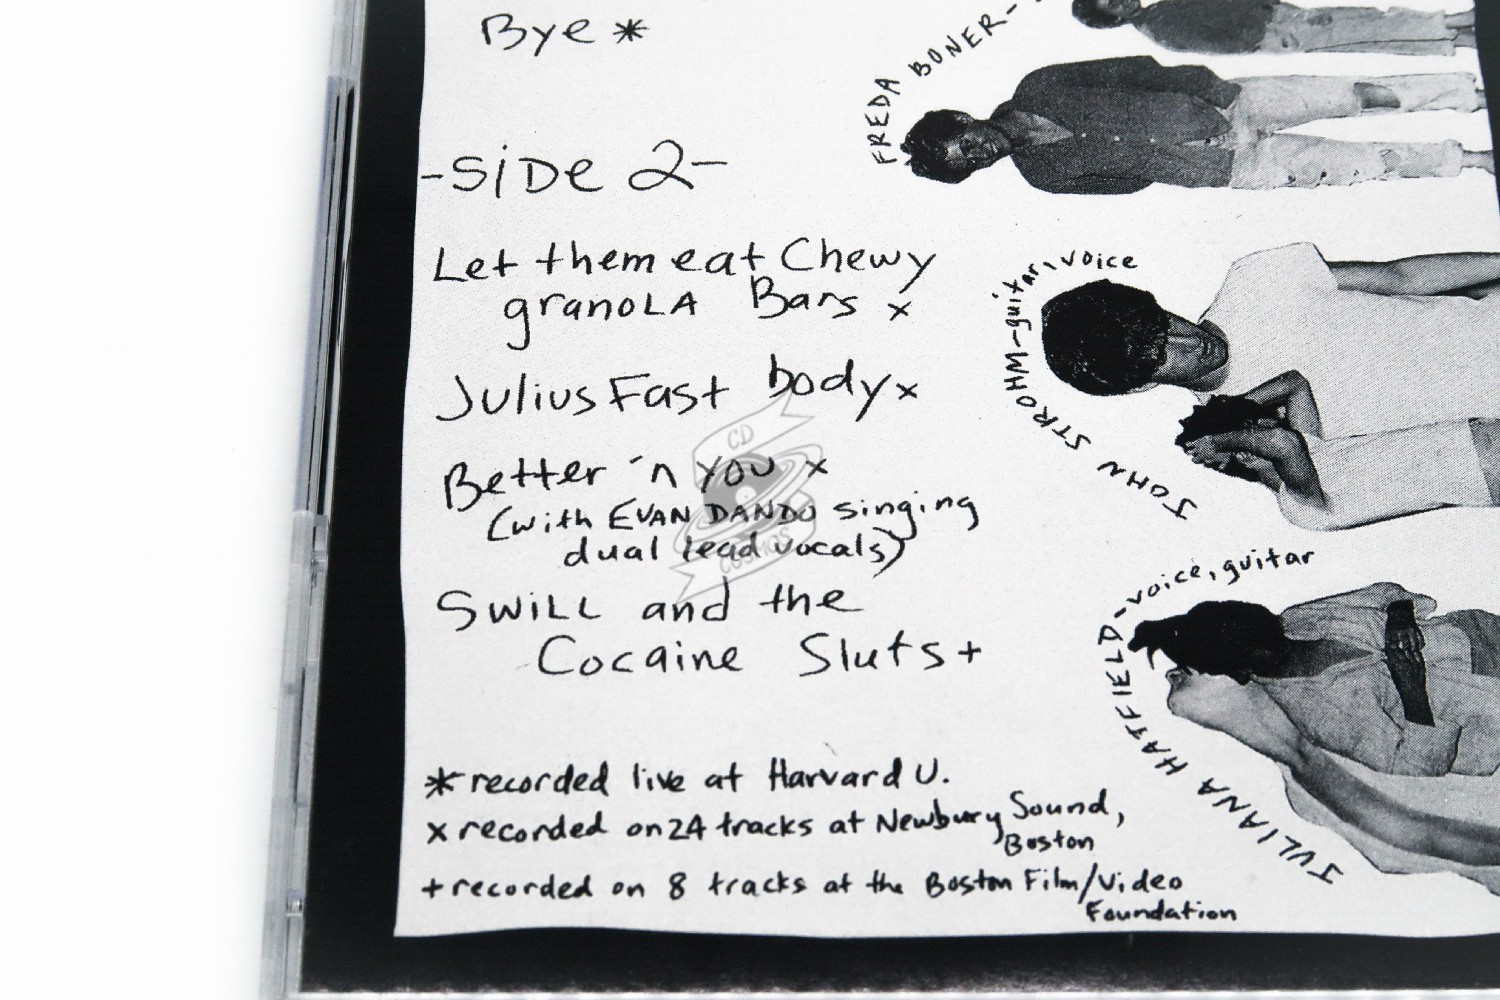 Bye *
-SiDe 2-
Let them eat Chewy
granoLA Bars x
Julius Fast body x
Better 'n you x
(with EVAN DANDO singing
dual lead vocals)
SWiLL and the
Cocaine Sluts +
* recorded live at Harvard U.
x recorded on 24 tracks at Newbury Sound,
Boston
+ recorded on 8 tracks at the Boston Film/Video
Foundation
FREDA BONER-
JOHN STROHM-guitar, voice
JULIANA HATFIELD-voice, guitar
CD
COSMOS